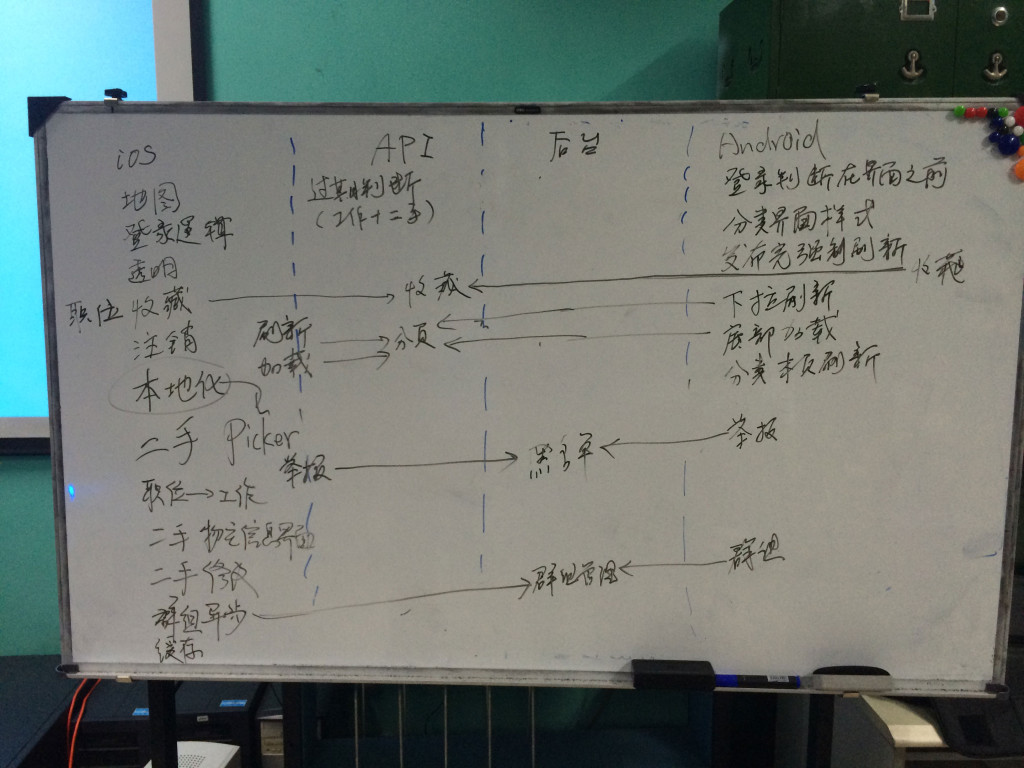 iOS
API
后台
Android
地图
过期判断
登录判断在界面之前
登录逻辑
(工作+二手)
分类界面样式
透明
发布完强制刷新
职位 收藏
收藏
收藏
注销
刷新
分页
下拉刷新
加载
底部加载
本地化
分类本页刷新
二手 Picker
举报
黑名单
举报
职位→工作
二手物品信息界面
二手修改
群组管理
群组
群组异步
缓存